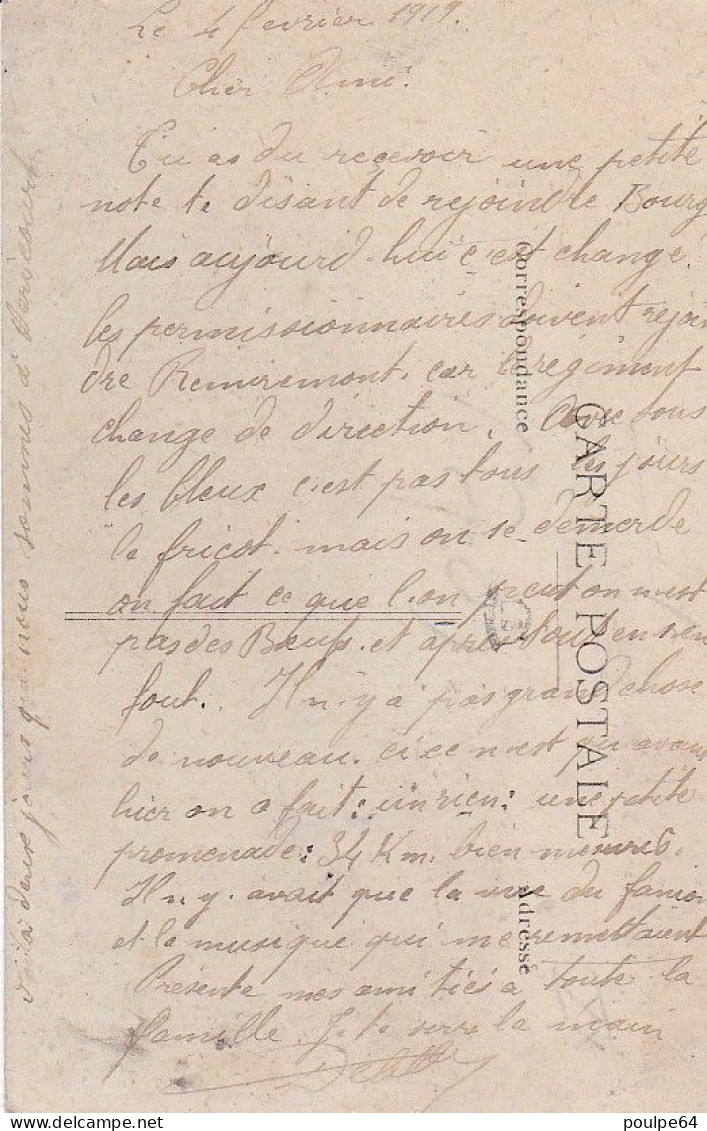 Le 4 fevrier 1919.
Cher Ami.
Tu as du recevoir une petite
note te disant de rejoindre Bourg
Mais aujourd-hui c'est change.
les permissionnaires doivent rejoin
dre Remiremont. car le régiment
change de direction. Avec tous
les bleux c'est pas tous les jours
le fricot. mais on se demerde
on fait ce que l'on peut on n'est
pas des Bœufs. et après tout on s'en
fout. Il n'y a pas grand chose
de nouveau. ci ce n'est qu'avant
hier on a fait: un rien: une petite
promenade: 34 Km. bien mesurés.
Il n.y. avait que la vue du fanion
et la musique qui me remettaient
Présente mes amitiés a toute la
famille. Je te serre la main
voila deux jours que nous sommes a
Correspondance
CARTE POSTALE
Adresse
delcampe.net
poulpe64